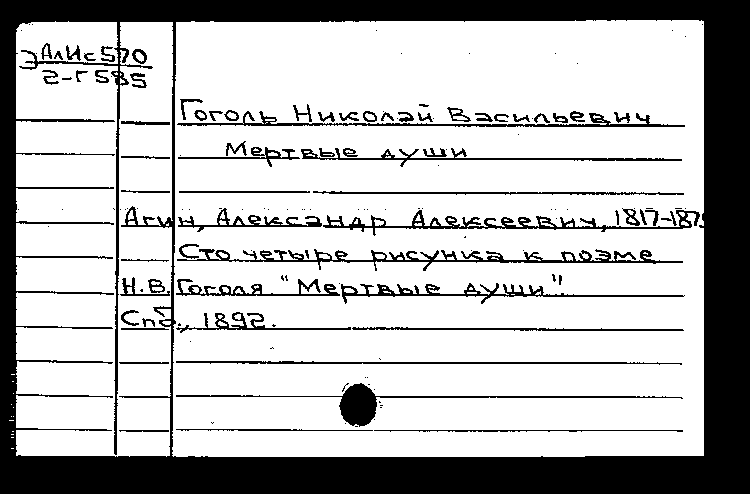 ЭАлИс570
2-Г585
Гоголь Николай Васильевич
Мертвые души
Агин, Александр Алексеевич, 1817-1875
Сто четыре рисунка к поэме
Н.В. Гоголя "Мертвые души".
Спб., 1892.